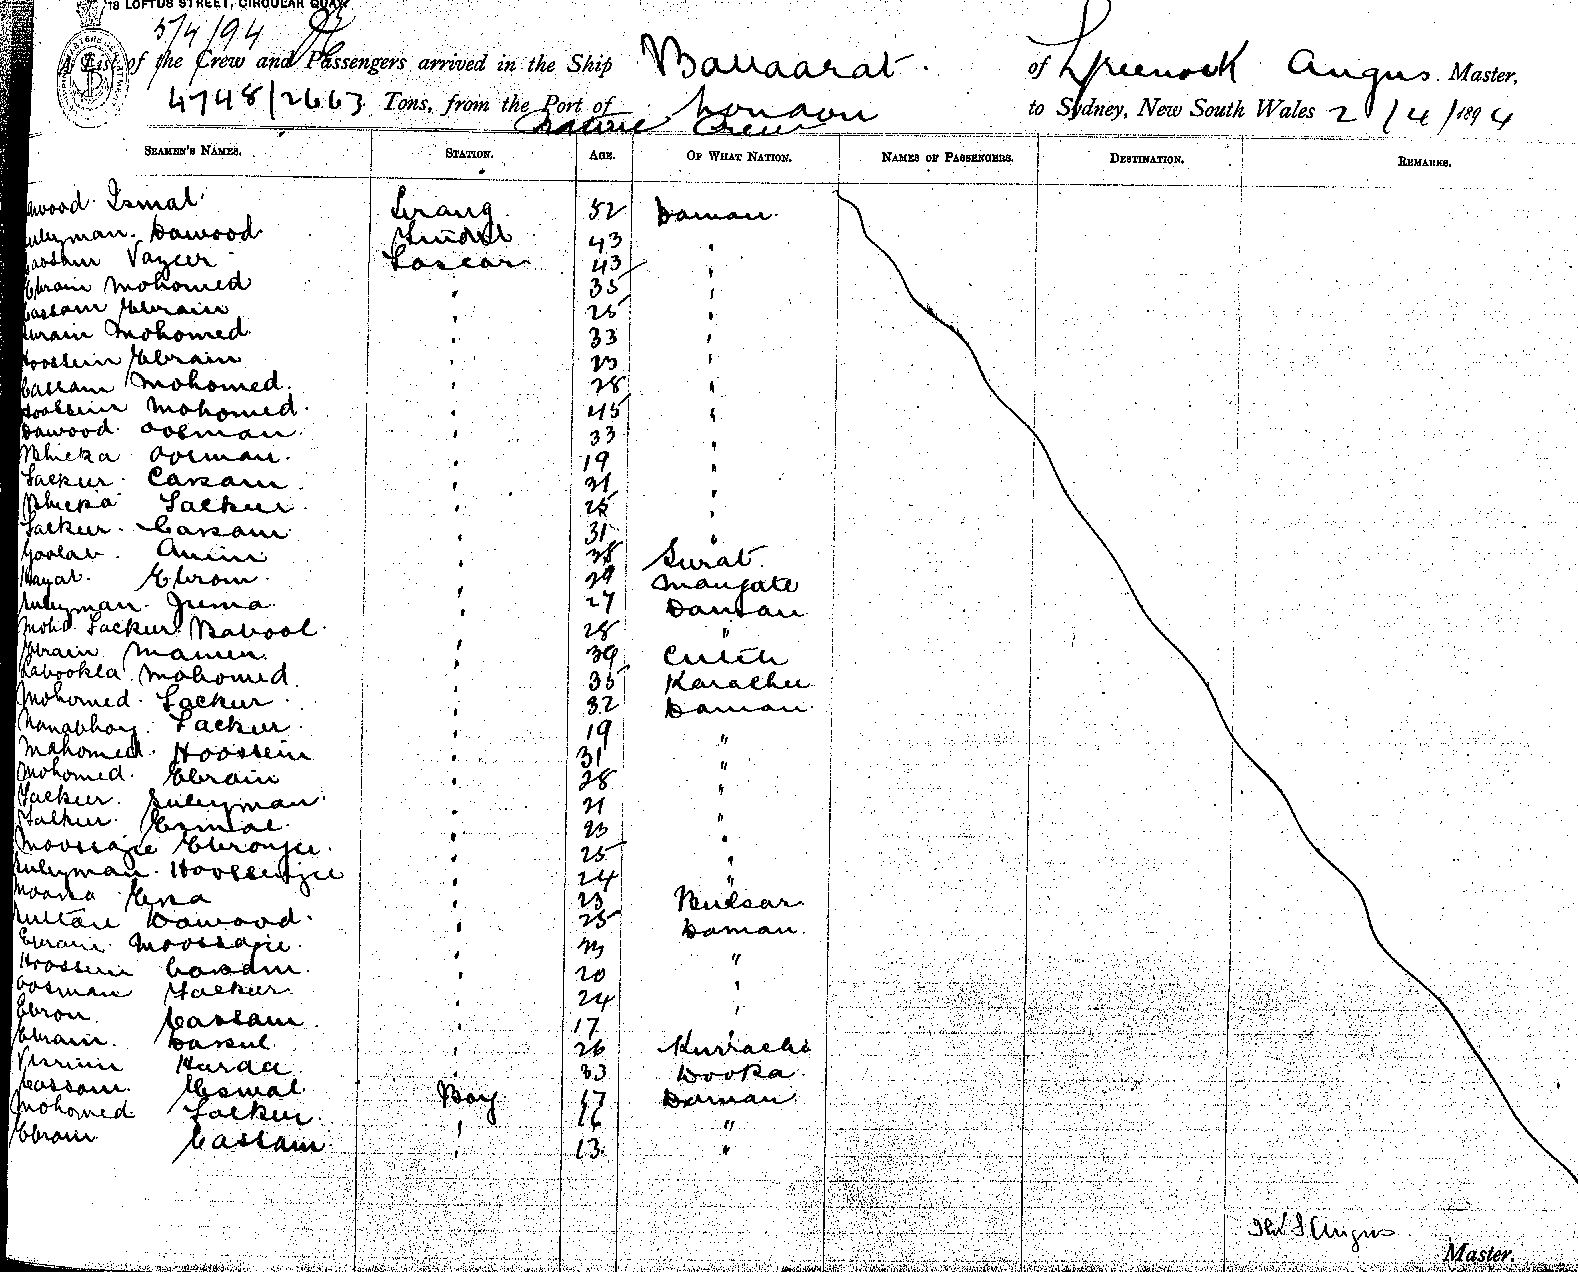 78 LOFTUS STREET, CIRCULAR QUAY
5/4/94
A List of the Crew and Passengers arrived in the Ship Ballaarat. of Greenock Angus. Master,
4748/2663 Tons, from the Port of London to Sydney, New South Wales 2/4/1894
Native Crew
SEAMEN'S NAMES. STATION. AGE. OF WHAT NATION. NAMES OF PASSENGERS. DESTINATION. REMARKS.
Dawood Esmal Serang 52 Daman
Suleyman Dawood Tindel 43 "
Cassam Vazeer Lascar 43 "
Ebrain Mohomed " 35 "
Cassam Ebrain " 25 "
Ebrain Mohomed " 33 "
Hoossein Ebrain " 23 "
Cassam Mohomed " 28 "
Hoossein Mohomed " 45 "
Dawood Oosman " 33 "
Bhicka Oosman " 19 "
Jackur Cassam " 21 "
Bhicka Jackur " 25 "
Jackur Cassam " 31 "
Goolab Amin " 38 Surat
Hayat Ebrom " 29
Suleyman Juma " 27 Daman
Mohd Jackur Babool " 28 "
Ebrain " 39 Cutch
Mohomed " 35 Karachee
Mohomed Jackur " 32 Daman
Nanabhoy Jackur " 19 "
Mahomed Hoossein " 31 "
Mohomed Ebrain " 28 "
Jackur Suleyman " 21 "
Jackur Esmal " 23 "
Moossajee Ebromjee " 25 "
Suleyman Hoosseinjee " 24 "
Moosa Essa " 23 Bulsar
Sultan Dawood " 25 Daman
Ebrain Moossajee " "
Hoossein Cassam " 20 "
Oosman Jackur " 24 "
Ebron Cassam " 17 "
Ebrain " 26 Kurrachi
" 33
Cassam Esmal Boy 17 Daman
Mohomed Jackur " 16 "
Ebrain Cassam " 13 "
Angus
Master.